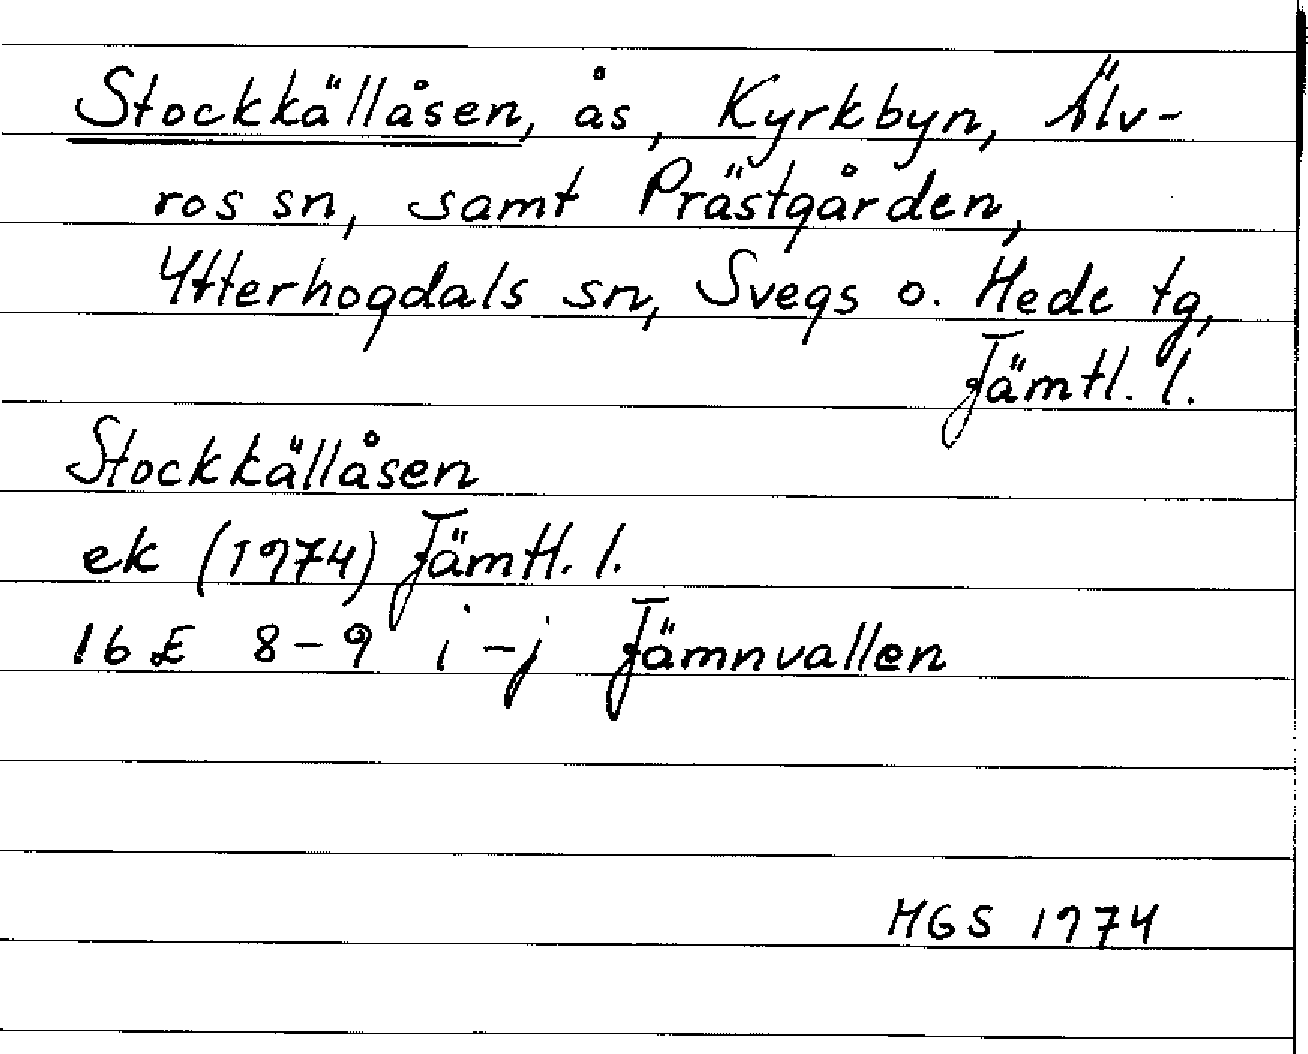 Stockkällåsen, ås, Kyrkbyn, Älv-
ros sn, samt Prästgården,
Ytterhogdals sn, Svegs o. Hede tg,
Jämtl. l.
Stockkällåsen
ek (1974) Jämtl. l.
16E 8-9 i-j Jämnvallen
HGS 1974